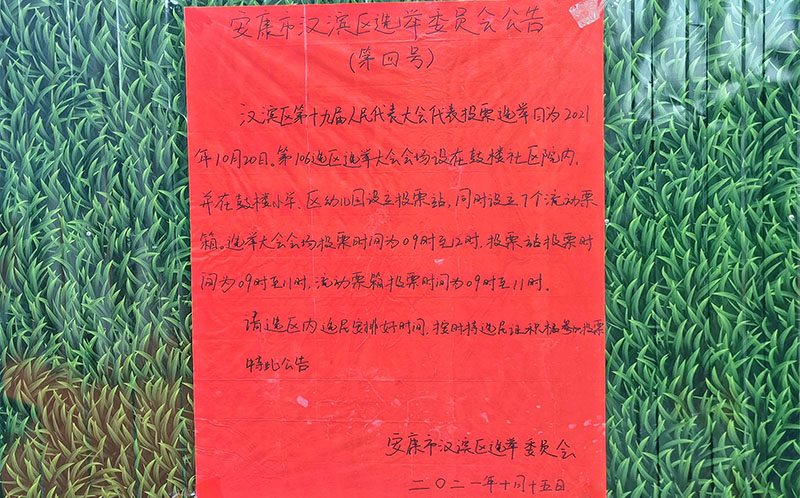 安康市汉滨区选举委员会公告
(第四号)
汉滨区第十九届人民代表大会代表投票选举日为2021
年10月20日。第106选区选举大会会场设在鼓楼社区院内,
并在鼓楼小学、区幼儿园设立投票站,同时设立7个流动票
箱。选举大会会场投票时间为09时至12时,投票站投票时
间为09时至11时,流动票箱投票时间为09时至11时。
请选区内选民安排好时间,按时持选民证积极参加投票
特此公告
安康市汉滨区选举委员会
二〇二一年十月十五日